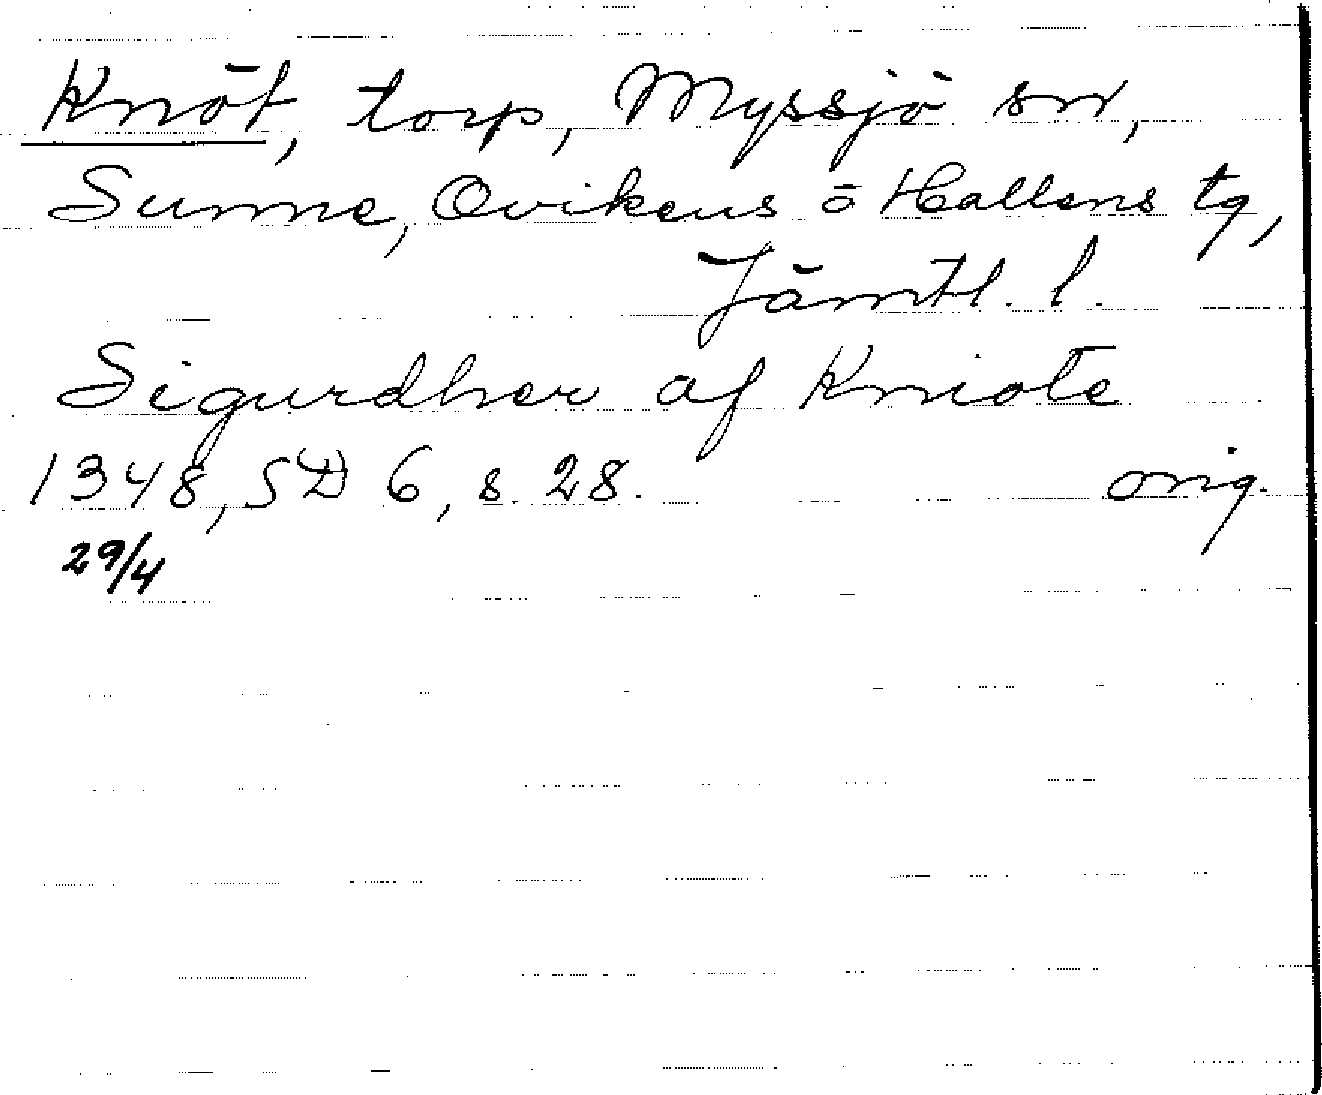 Knöt, torp, Myssjö sn,
Sunne, Ovikens o Hallens tg,
Jämtl. l.
Sigurdher af Kniote
1348, SD 6, s. 28. orig.
29/4